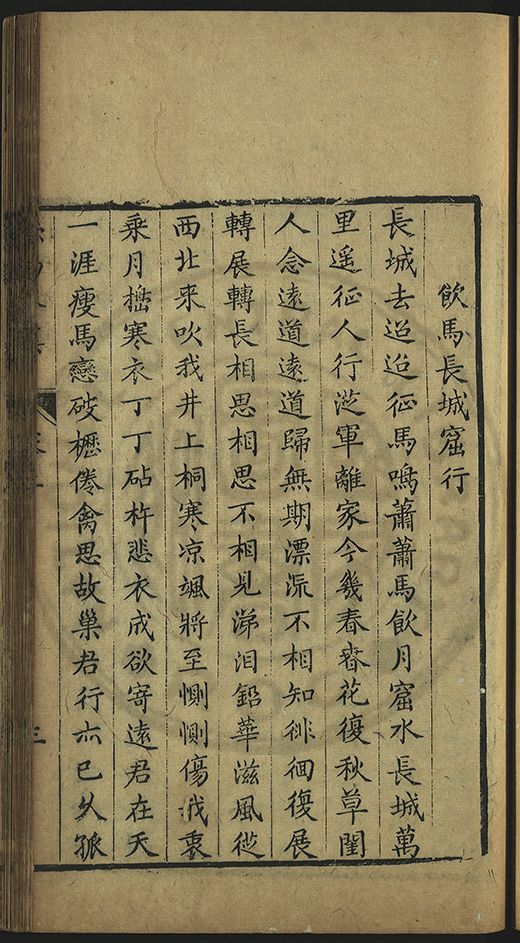 飲馬長城窟行
長城去迢迢征馬鳴蕭蕭馬飲月窟水長城萬
里遥征人行從軍離家今幾春春花復秋草閨
人念遠道遠道歸無期漂流不相知徘徊復展
轉展轉長相思相思不相見涕泪鉛華滋風從
西北來吹我井上桐寒凉颯將至惻惻傷我衷
乘月擣寒衣丁丁砧杵悲衣成欲寄遠君在天
一涯瘦馬戀破櫪倦禽思故巢君行亦已久孤
三